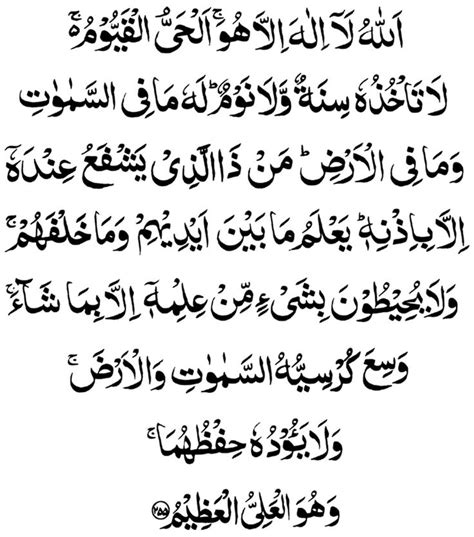 اَللّٰهُ لَاۤ اِلٰهَ اِلَّا هُوَۚ اَلْحَیُّ الْقَیُّوْمُ ۬ۚ
لَا تَاْخُذُهٗ سِنَةٌ وَّلَا نَوْمٌؕ لَهٗ مَا فِی السَّمٰوٰتِ
وَمَا فِی الْاَرْضِؕ مَنْ ذَا الَّذِیْ یَشْفَعُ عِنْدَهٗۤ
اِلَّا بِاِذْنِهٖؕ یَعْلَمُ مَا بَیْنَ اَیْدِیْهِمْ وَمَا خَلْفَهُمْۚ
وَلَا یُحِیْطُوْنَ بِشَیْءٍ مِّنْ عِلْمِهٖۤ اِلَّا بِمَا شَآءَۚ
وَسِعَ كُرْسِیُّهُ السَّمٰوٰتِ وَالْاَرْضَۚ
وَلَا یَـُٔوْدُهٗ حِفْظُهُمَاۚ
وَهُوَ الْعَلِیُّ الْعَظِیْمُ ۲۵۵